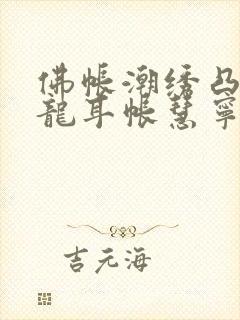 佛帐潮绣凸
龍耳帐慧寧
吉元海